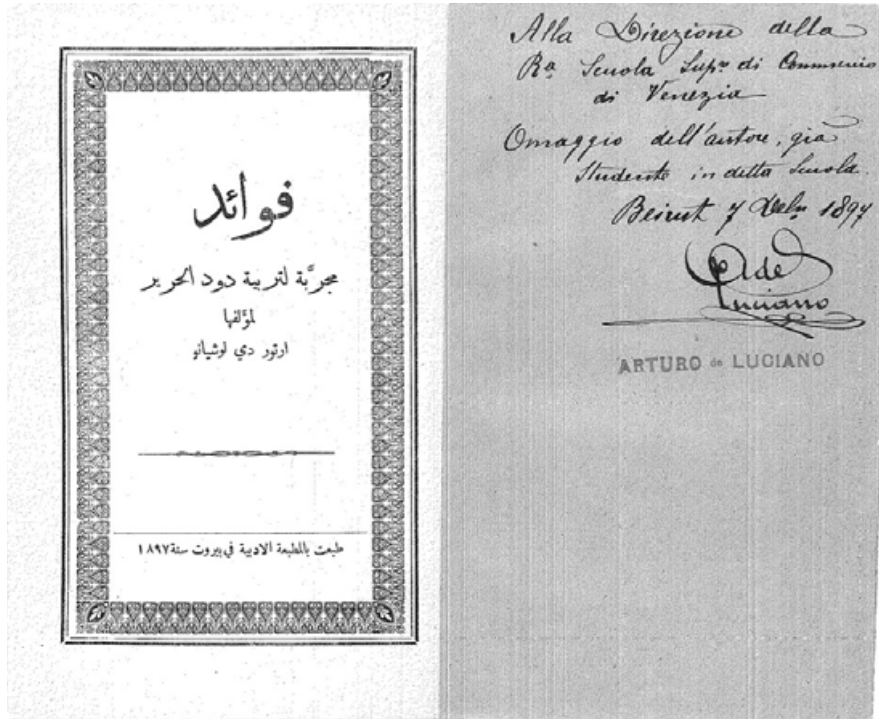 فوائد
مجربَّة لتربية دود الحرير
لمؤلفها
ارتور دي لوشيانو
طبعت بالمطبعة الادبية في بيروت سنة ١٨٩٧
Alla Direzione della
Rª Scuola Supʳᵉ di Commercio
di Venezia
Omaggio dell'autore, già
Studente in detta Scuola.
Beirut 7 1897
A de
Luciano
ARTURO de LUCIANO